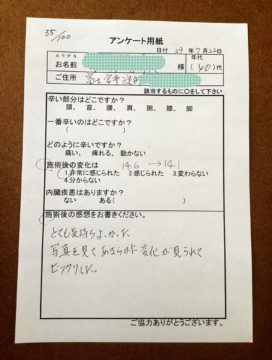 55/100
アンケート用紙
日付 29年7月22日
ふりがな
お名前 様
年代
(30)代
ご住所
該当するものに○をして下さい
辛い部分はどこですか？
頭、首、腰、肩、腕、膝、脚
一番辛いのはどこですか？
( )
どのように辛いですか？
痛い、痺れる、動かない
施術後の変化は 14.6 → 14.1
1.非常に感じられた 2.感じられた 3.変わらない
4.分からない
内臓疾患はありますか？
ない ある( )
施術後の感想をお書きください。
とても気持ちよかった
写真を見てあきらかに変化が見られて
ビックリした。
ご協力ありがとうございます。